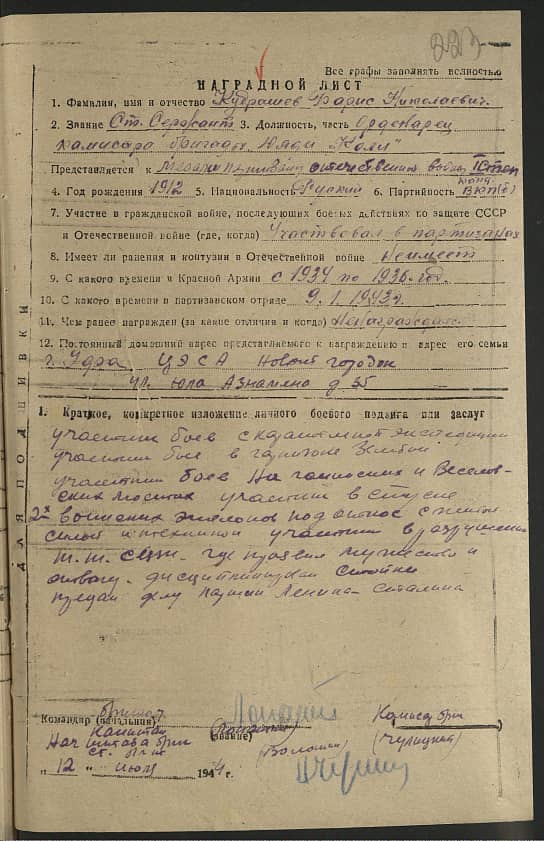 Все графы заполнять полностью
НАГРАДНОЙ ЛИСТ
1. Фамилия, имя и отчество Кудряшев Фарис Николаевич
2. Звание Ст. Сержант 3. Должность, часть Ординарец
комисара бригады Дяди Коли"
Представляется к отечественной войны
4. Год рождения 1912 5. Национальность Руский 6. Партийность канд ВКП(б)
7. Участие в гражданской войне, последующих боевых действиях по защите СССР
и Отечественной войне (где, когда) Участвовал в партизанах
8. Имеет ли ранения и контузии в Отечественной войне Неимеет
9. С какого времени в Красной Армии с 1934 по 1936 год.
10. С какого времени в партизанском отряде 9.1.1943г
11. Чем ранее награжден (за какие отличия и когда) Ненаграждался
12. Постоянный домашний адрес представляемого к награждению и адрес его семьи
г. ЦЭСА Новый городок
ул. д 35
ДЛЯ ПОДШИВКИ
1. Краткое, конкретное изложение личного боевого подвига или заслуг
участник боев с экспедицией
участник бое в гарнизоне
участник боев На и Веселов-
ских мостах участник в спуске
2х воинских эшелонов под откос с живой
силой и техникой участник в разрушении
где проявил мужество и
отвагу. дисциплинирован
предан делу партии Ленина Сталина
Командир (начальник) бригад Комисар бриг
Капитан (звание) (Чулицкий)
Нач штаба бриг
ст. л-т (Волошин)
„12 " июля 1944 г.